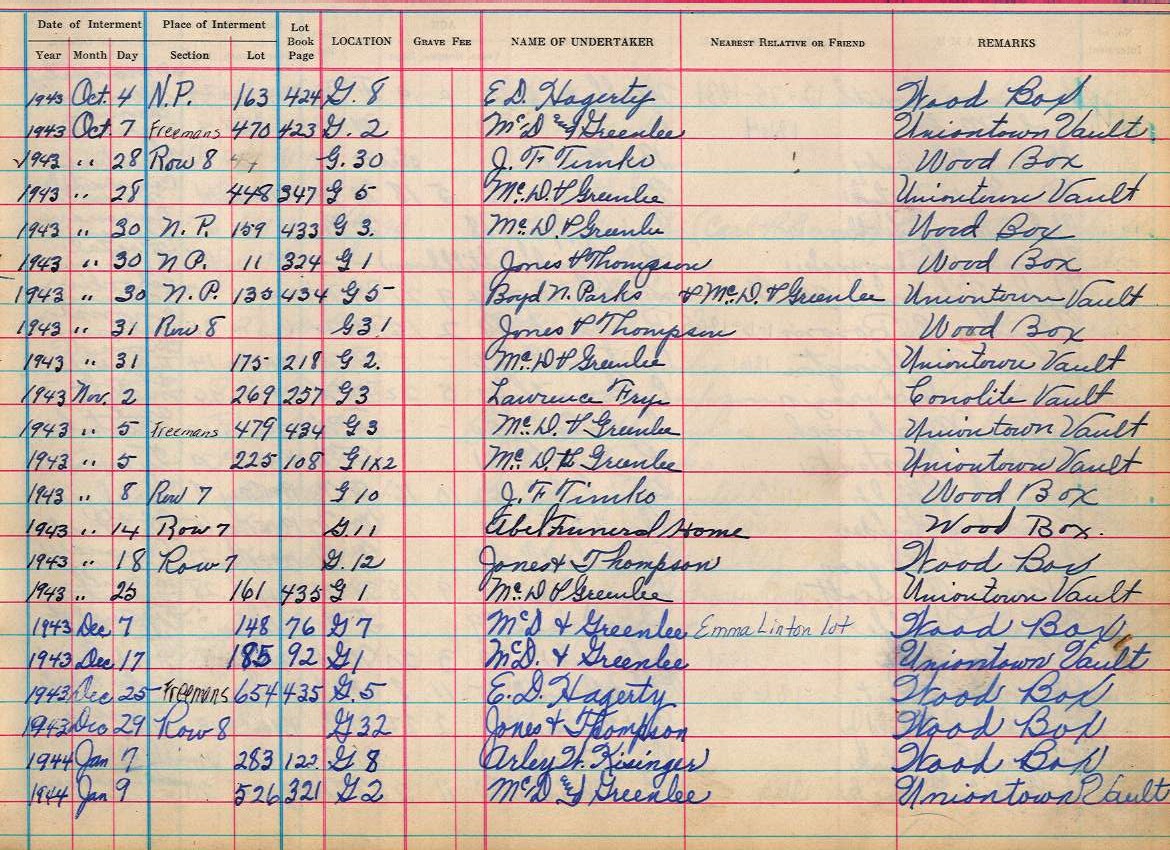 Date of Interment Place of Interment Lot Book Page LOCATION GRAVE FEE NAME OF UNDERTAKER NEAREST RELATIVE OR FRIEND REMARKS
Year Month Day Section Lot
1943 Oct. 4 N.P. 163 424 G. 8 E.D. Hagerty Wood Box
1943 Oct. 7 Freemans 470 423 G. 2 McD and Greenlee Uniontown Vault
1943 " 28 Row 8 G. 30 J. F Timko Wood Box
1943 " 28 448 347 G 5 Mc.D. & Greenlee Uniontown Vault
1943 " 30 N. P. 159 433 G 3. Mc.D. & Greenlee Wood Box
1943 " 30 N P. 11 324 G 1 Jones & Thompson Wood Box
1943 " 30 N. P. 135 434 G 5 Boyd N. Parks & Mc.D. & Greenlee Uniontown Vault
1943 " 31 Row 8 G31 Jones & Thompson Wood Box
1943 " 31 175 218 G 2. Mc.D & Greenlee Uniontown Vault
1943 Nov. 2 269 257 G3 Lawrence Frye Conolite Vault
1943 " 5 Freemans 479 434 G3 Mc.D. & Greenlee Uniontown Vault
1943 " 5 225 108 G 1x2 Mc.D. & Greenlee Uniontown Vault
1943 " 8 Row 7 G 10 J. F Timko Wood Box
1943 " 14 Row 7 G. 11 Abel Funeral Home Wood Box.
1943 " 18 Row 7 G. 12 Jones & Thompson Wood Box
1943 " 25 161 435 G 1 Mc.D & Greenlee Uniontown Vault
1943 Dec 7 148 76 G 7 McD & Greenlee Emma Linton lot Wood Box
1943 Dec 17 185 92 G 1 McD. & Greenlee Uniontown Vault
1943 Dec 25 Freemans 654 435 G. 5 E.D. Hagerty Wood Box
1943 Dec 29 Row 8 G 32 Jones & Thompson Wood Box
1944 Jan 7 283 122 G 8 Arley W. Kisinger Wood Box
1944 Jan 9 526 321 G 2 McD and Greenlee Uniontown Vault